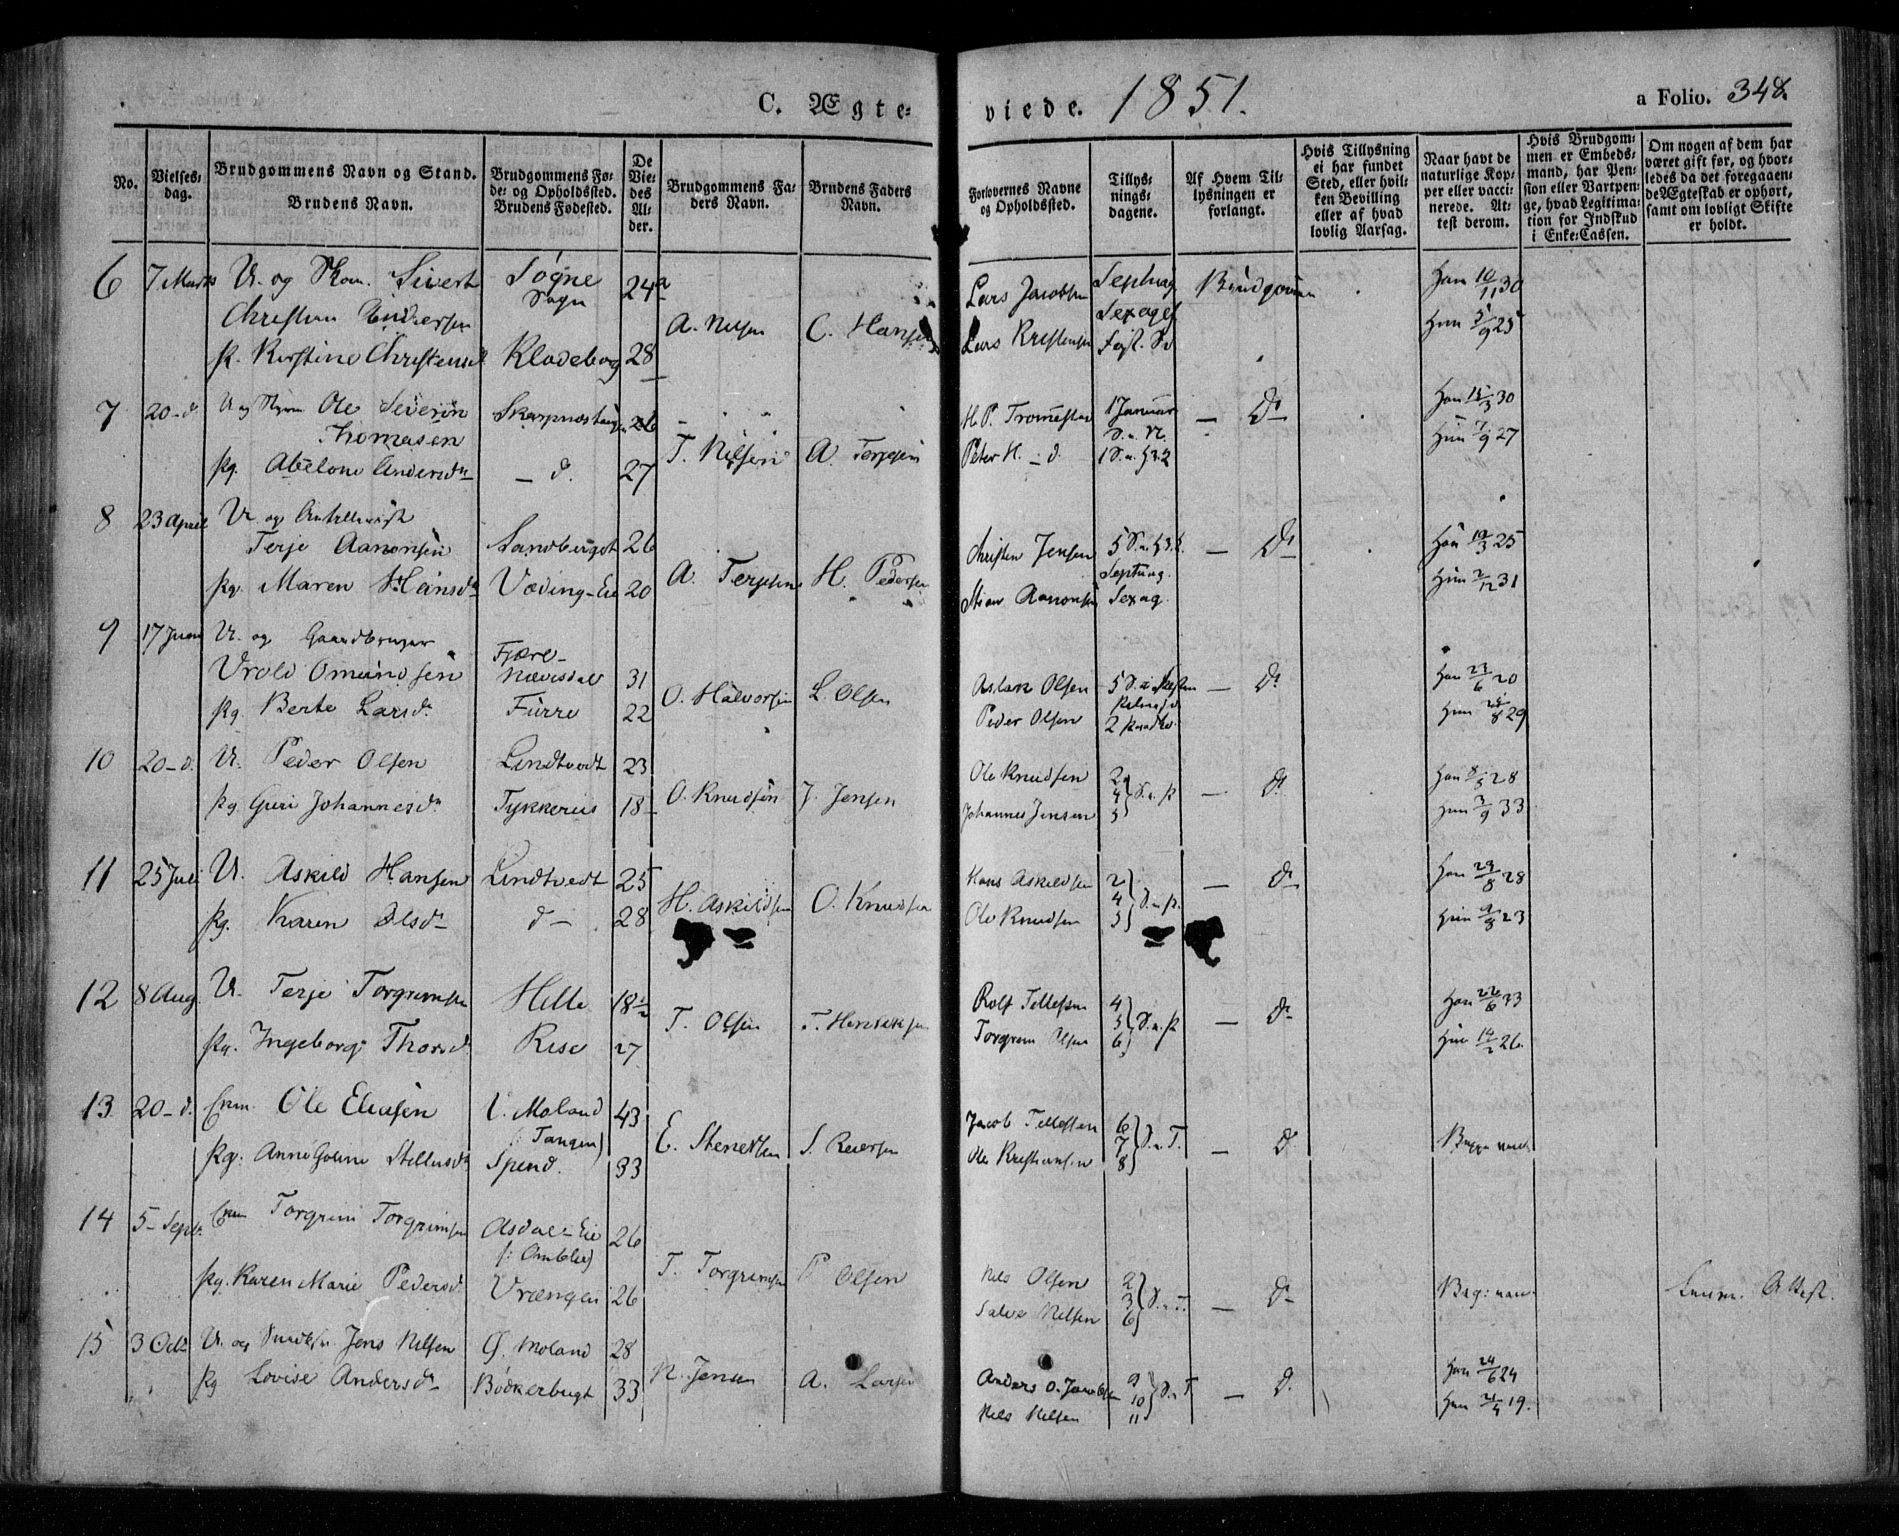 C. Ægte-
viede. 1851.
a Folio. 348.
No.
Vielses-
dag.
Brudgommens Navn og Stand.
Brudens Navn.
Brudgommens Fø-
de- og Opholdssted.
Brudens Fødested.
De
Vie-
des
Al-
der.
Brudgommens Fa-
ders Navn.
Brudens Faders
Navn.
Forlovernes Navne
og Opholdssted.
Tillys-
nings-
dagene.
Af Hvem Til-
lysningen er
forlangt.
Hvis Tillysning
ei har fundet
Sted, eller hvil-
ken Bevilling
eller af hvad
lovlig Aarsag.
Naar havt de
naturlige Kop-
per eller vacci-
nerede. At-
test derom.
Hvis Brudgom-
men er Embeds-
mand, har Pen-
sion eller Vartpen-
ge, hvad Legitima-
tion for Indskud
i Enke-Cassen.
Om nogen af dem har
været gift før, og hvor-
ledes da det foregaaen-
de Ægteskab er ophørt,
samt om lovligt Skifte
er holdt.
6 7 Marts U. og Skom. Sivert Søgne 24 Lars Jacobsen Septuag Brudgommen Han 10/11 30
Christian Andersen Sogn A. Nilsen C. Hansen Sexages Hun 5/9 25
P. Kirstine Christensd. Kladeborg 28 Lars Kristensen Fast. S.
7 20 - d. U og Ole Severin Skarpnæs 26 H. P. Tromestad 1 Januar — Do Han 15/3 30
Thomasen T. Nilsen A. Terjesen S. e. N. Hun 7/9 27
Pg. Abelone Andersd. — d. 27 Peter H. — d. 1 S. e. H3K
8 23 April U. og
Terje Aanonsen Sandberget 26 Christen Jensen 5 S. e. H3K. — Do Han 10/3 25
Pg. Maren Hansd. Væding-Eie 20 A. Terjesen H. Pedersen Septuag. Hun 2/12 31
Stian Aanonsen Sexag.
9 17 Juni U. og Gaardbruger Fjære-
Vrold Omundsen Nævisdal 31 O. Halvorsen L. Olsen Aslak Olsen — Do Han 23/6 20
Pg. Berte Larsd. Furre 22 Peder Olsen Hun 8 29
10 20 - d. U. Peder Olsen Lindtvedt 23 O. Knudsen J. Jensen Ole Knudsen 2 4 5 S. e. P — Do Han 8/5 28
Pg Guri Johannesd. Tykkeriis 18 Johannes Jensen Hun 3/9 33
11 25 Juli U. Askild Hansen Lindtvedt 25 H. Askildsen O. Knudsen Hans Askildsen 2 4 5 S. e. P. — Do Han 23/8 28
Pg. Karen Olsd. d — 28 Ole Knudsen Hun 9/8 23
12 8 Aug U. Terje Torgrimsen Hille 18½ T. Olsen T. Henriksen Rolf Tellefsen 4 5 6 S. e. P — Do Han 26/6 33
Pg. Ingeborg Thorsd. Rise 27 Torgrim Olsen Hun 14/2 26.
13 20 - d. Enm. Ole Eliasen Ø. Moland 43 E. Stenersen S. Reiersen Jacob Tellefsen 6 7 8 S. e. T. — Do
(: Tangen)
Pg. Anne Goline Spend. 33 Ole Kristiansen
14 5 - Septb. Torgrim Torgrimsen Asdal-Eie 26 T. Torgrimsen P Olsen Nils Olsen 2 3 6 S. e. T. — Do Attest.
Pg. Karen Marie Pedersd. Vrængen 26 Salve Nilsen
15 3 Octb U. og Jens Nilsen Ø. Moland 28 N. Jensen A. Larsen Anders O. Jacobsen 9 10 11 S. e. T — D. Han 24/6 24
Pg Lovise Andersd. Bødkerbugt 33 Nils Nilsen Hun 21/4 19.